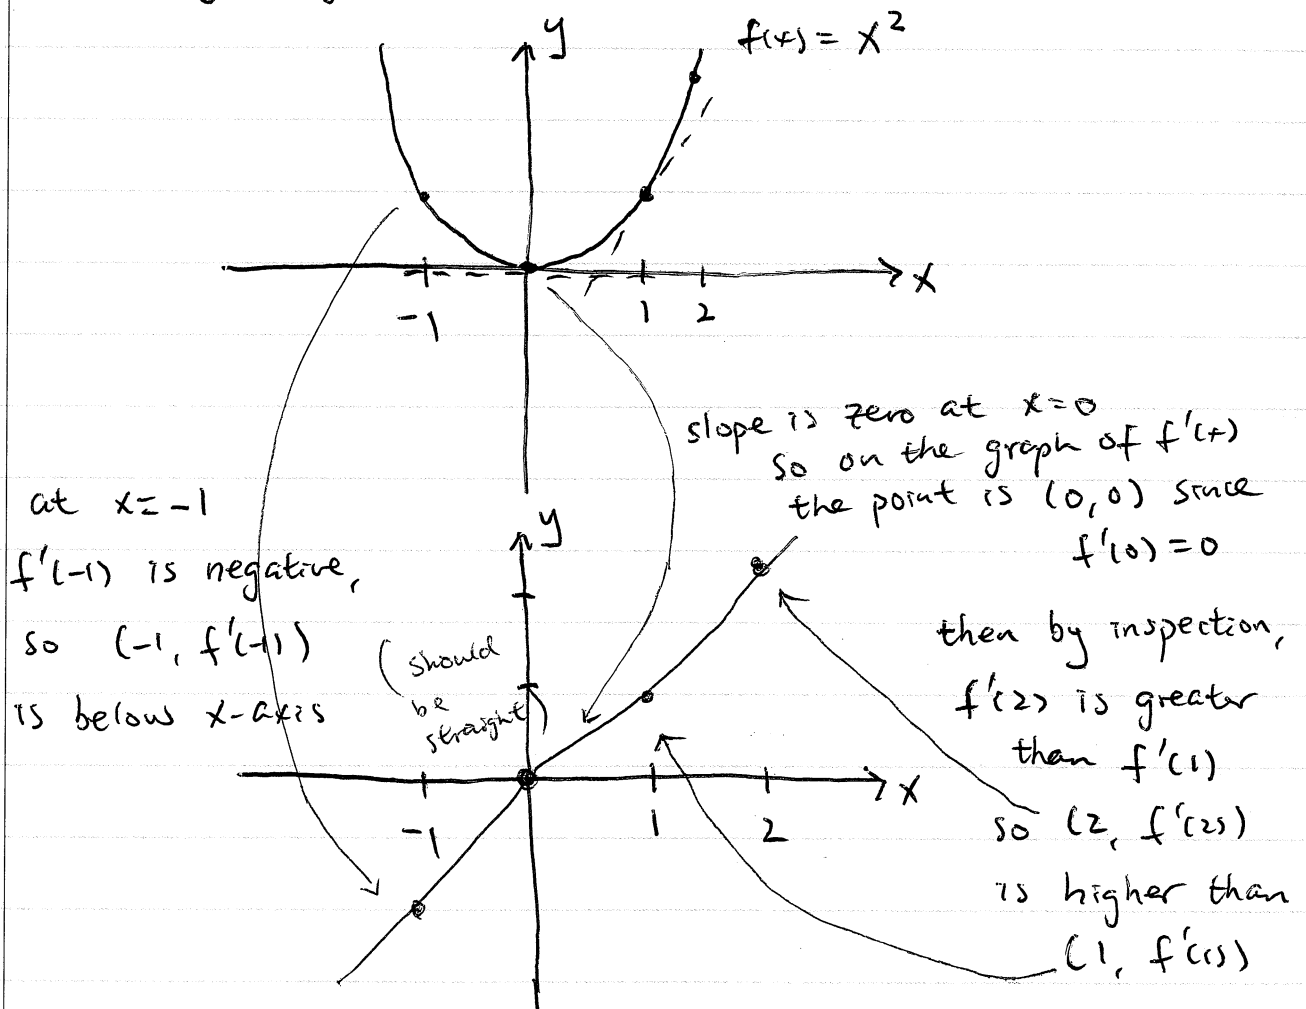 y
f(x) = x²
x
-1
1
2
slope is zero at x=0
so on the graph of f'(x)
the point is (0,0) since
f'(0) = 0
at x = -1
f'(-1) is negative,
so (-1, f'(-1))
is below x-axis
y
(should
be
straight)
then by inspection,
f'(2) is greater
than f'(1)
so (2, f'(2))
is higher than
(1, f'(1))
x
-1
1
2